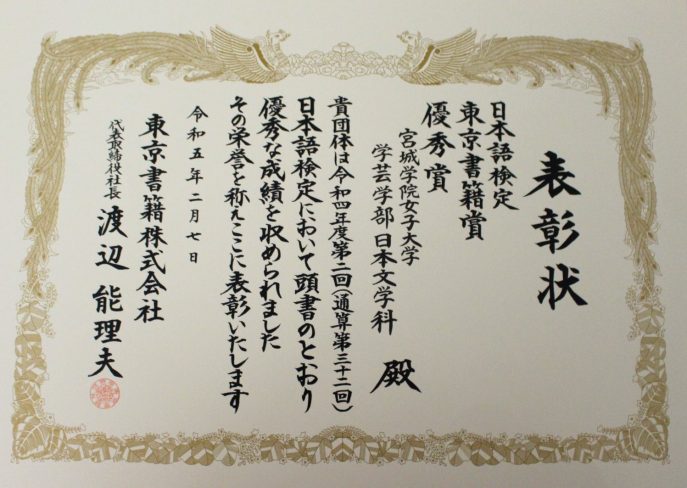 表彰状
日本語検定
東京書籍賞
優秀賞
宮城学院女子大学
学芸学部日本文学科 殿
貴団体は令和四年度第二回(通算第三十二回)
日本語検定において頭書のとおり
優秀な成績を収められました
その栄誉を称えここに表彰いたします
令和五年二月七日
東京書籍株式会社
代表取締役社長 渡辺能理夫